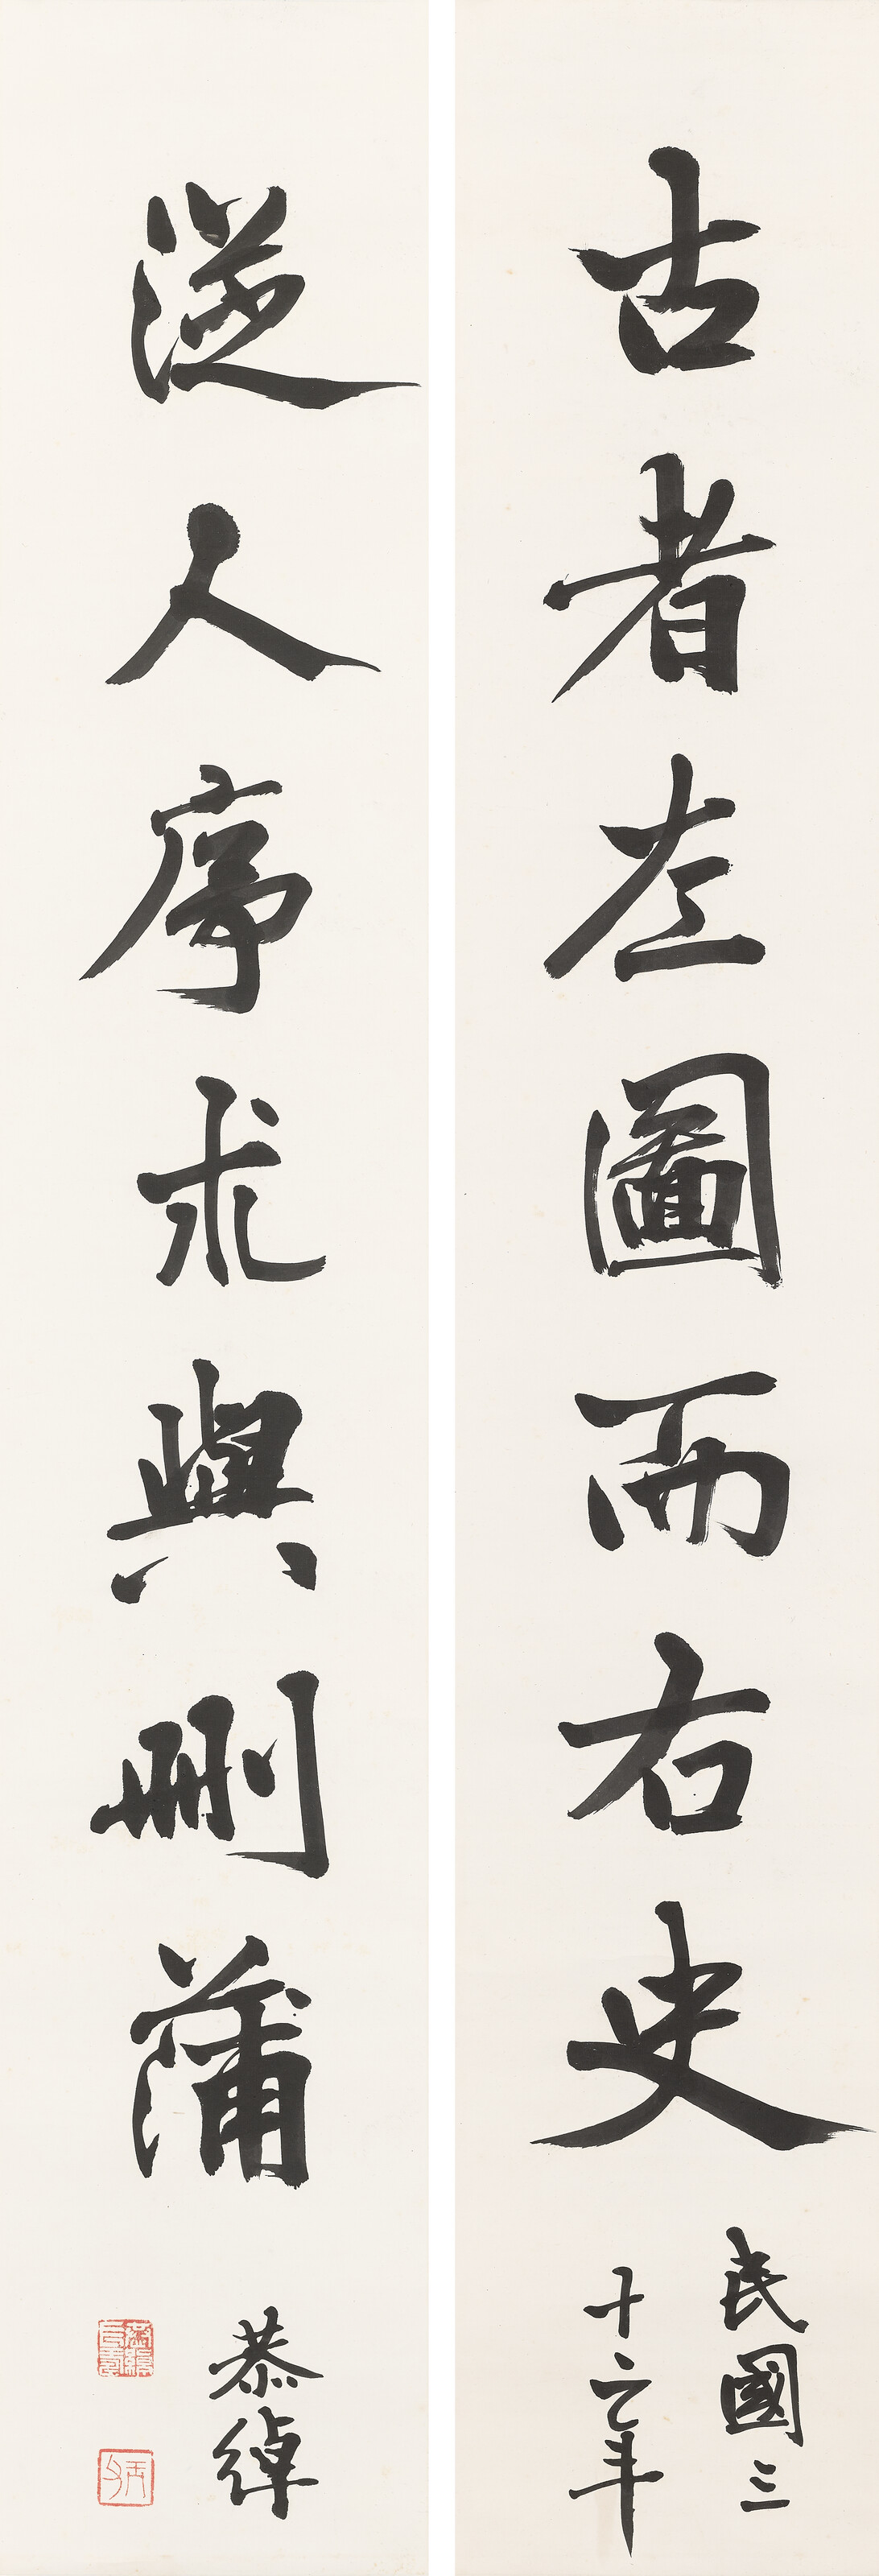 古者左圖而右史
民國三
十六年
從人序朮與刪蒲
恭綽